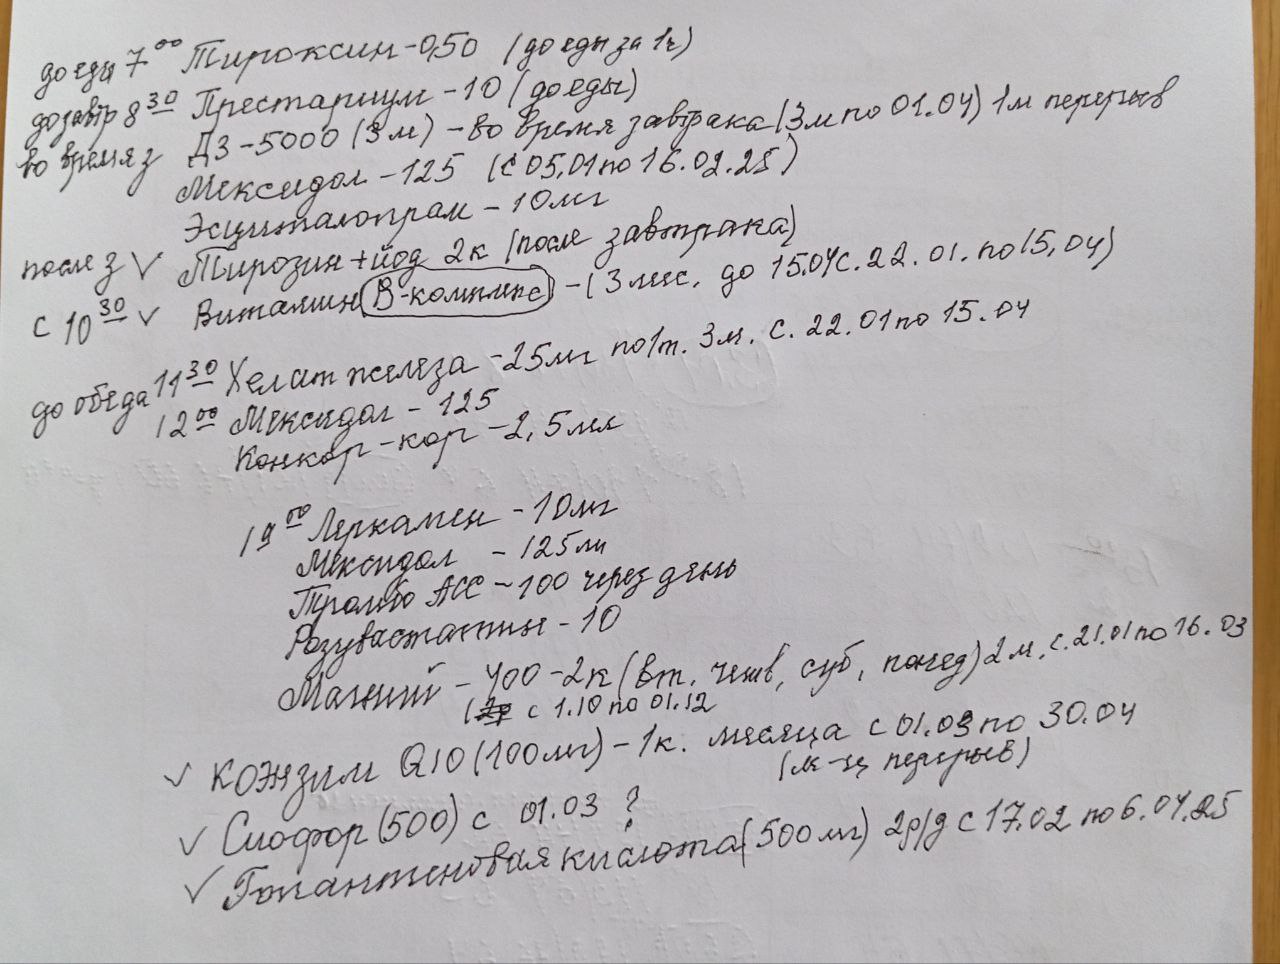 до еды 7⁰⁰ Тироксин - 0,50 (до еды за 1ч)
до завтр 8³⁰ Престариум - 10 (до еды)
во время з Д3 - 5000 (3м) - во время завтрака (3м по 01.04) 1м перерыв
Мексидол - 125 (с 05.01 по 16.02.25)
Эсциталопрам - 10мг
после з ✓ Тирозин + йод 2к (после завтрака)
с 10³⁰ ✓ Витамин В-комплекс - (3 мес. до 15.04 с. 22. 01. по 15.04)
до обеда 11³⁰ Хелат железа - 25мг по 1т. 3м. с. 22.01 по 15.04
12⁰⁰ Мексидол - 125
Конкор - кор - 2,5мл
19⁰⁰ Леркамен - 10мг
Мексидол - 125мг
Тромбо АСС - 100 через день
Розувастатин - 10
Магний - 400 - 2к (вт. четв, суб, понед) 2м. с. 21.01 по 16.03
( с 1.10 по 01.12
✓ коэнзим Q10 (100мг) - 1к. месяца с 01.03 по 30.04
(м-ц перерыв)
✓ Сиофор (500) с 01.03 ?
✓ Гопантеновая кислота (500мг) 2р/д с 17.02 по 6.04.25